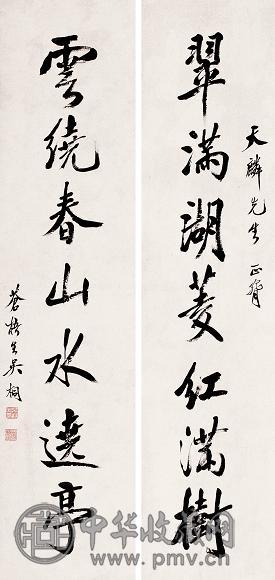 天麟先生
翠滿湖菱紅滿樹
雲繞春山水遶亭
蒼梧生吳桐
中华收藏网
www.pmv.cn